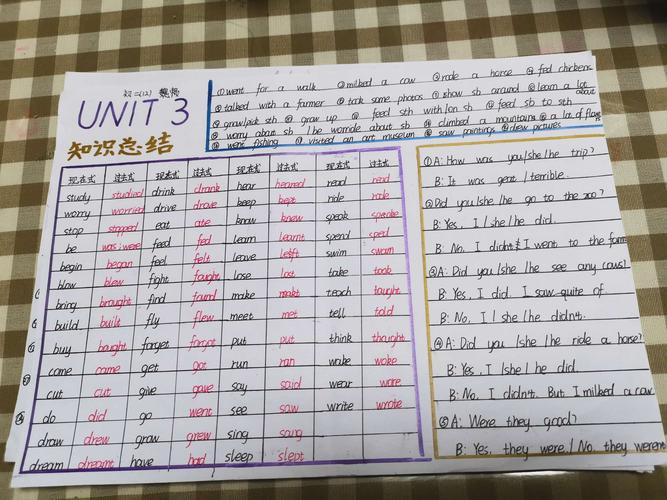 初二(12)
UNIT 3
知识总结
①went for a walk ②milked a cow ③rode a horse ④fed chickens
⑤talked with a farmer ⑥took some photos ⑦show sb around ⑧learn a lot about
⑨grow/pick sth ⑩grow up feed sth with/on sh feed sb to sth
worry about sh / be worride about sb climbed a mountains a lot of
went fishing visited an art museum saw paintings drew pictures
现在式 过去式 现在式 过去式 现在式 过去式 现在式 过去式
study studied drink drank hear heared read read
worry worried drive drove keep kept ride rode
stop stopped eat ate know knew speak
be was;were feed fed learn learnt spend sped
begin began feel felt leave left swim swam
blow blew fight fought lose lost take took
bring brought find found make teach taught
build built fly flew meet met tell told
buy bought forget forgot put put think thought
come came get got run ran wake woke
cut cut give gave say said wear wore
do did go went see saw write wrote
draw drew grow grew sing sang
dream dreamt have had sleep slept
①A: How was you/she/he trip?
B: It was great / terrible.
②Did you/she/he go to the zoo?
B: Yes, I/she/he did.
B: No, I didn't I went to the farm
③A: Did you/she/he see any cows?
B: Yes, I did. I saw quite of.
B: No, I she/he didn't.
④A: Did you/she/he ride a horse?
B: Yes, I/she/he did.
B: No, I didn't. But I milked a cow
⑤A: Were they good?
B: Yes, they were./No they weren't